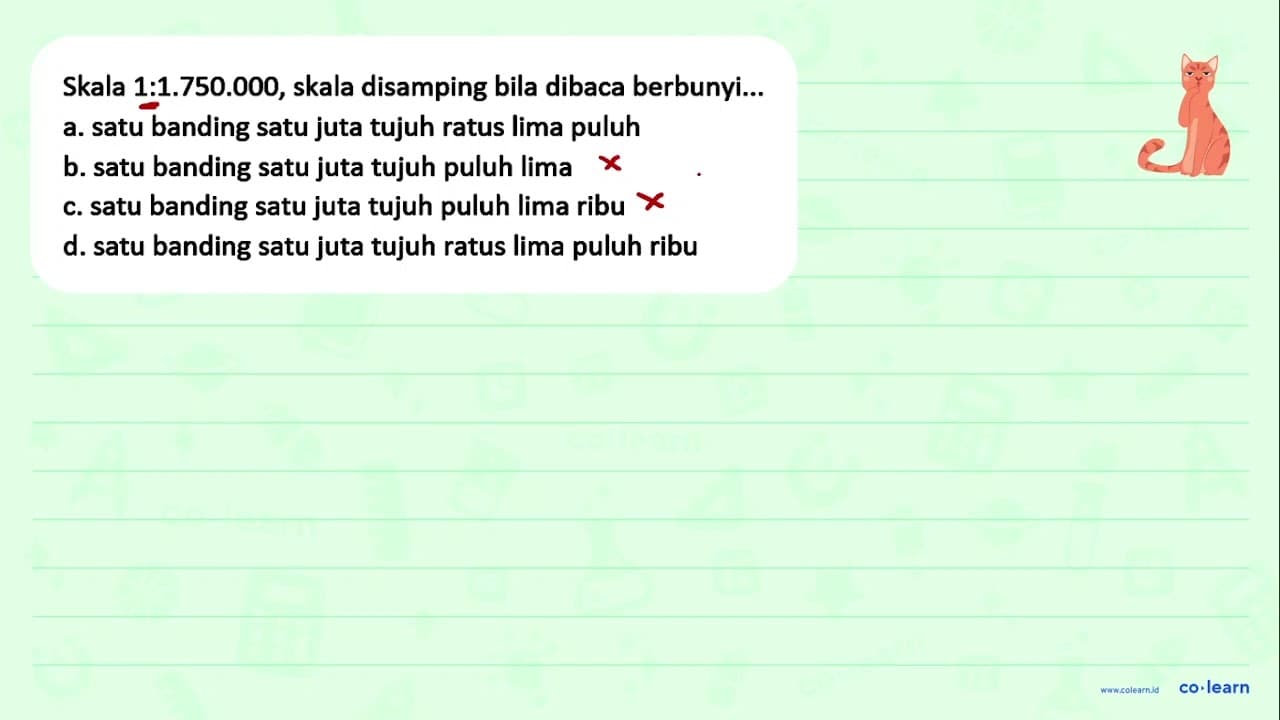 Skala 1:1.750.000, skala disamping bila dibaca berbunyi...
a. satu banding satu juta tujuh ratus lima puluh
b. satu banding satu juta tujuh puluh lima
c. satu banding satu juta tujuh puluh lima ribu
d. satu banding satu juta tujuh ratus lima puluh ribu
co·learn
co·learn
www.colearn.id co·learn